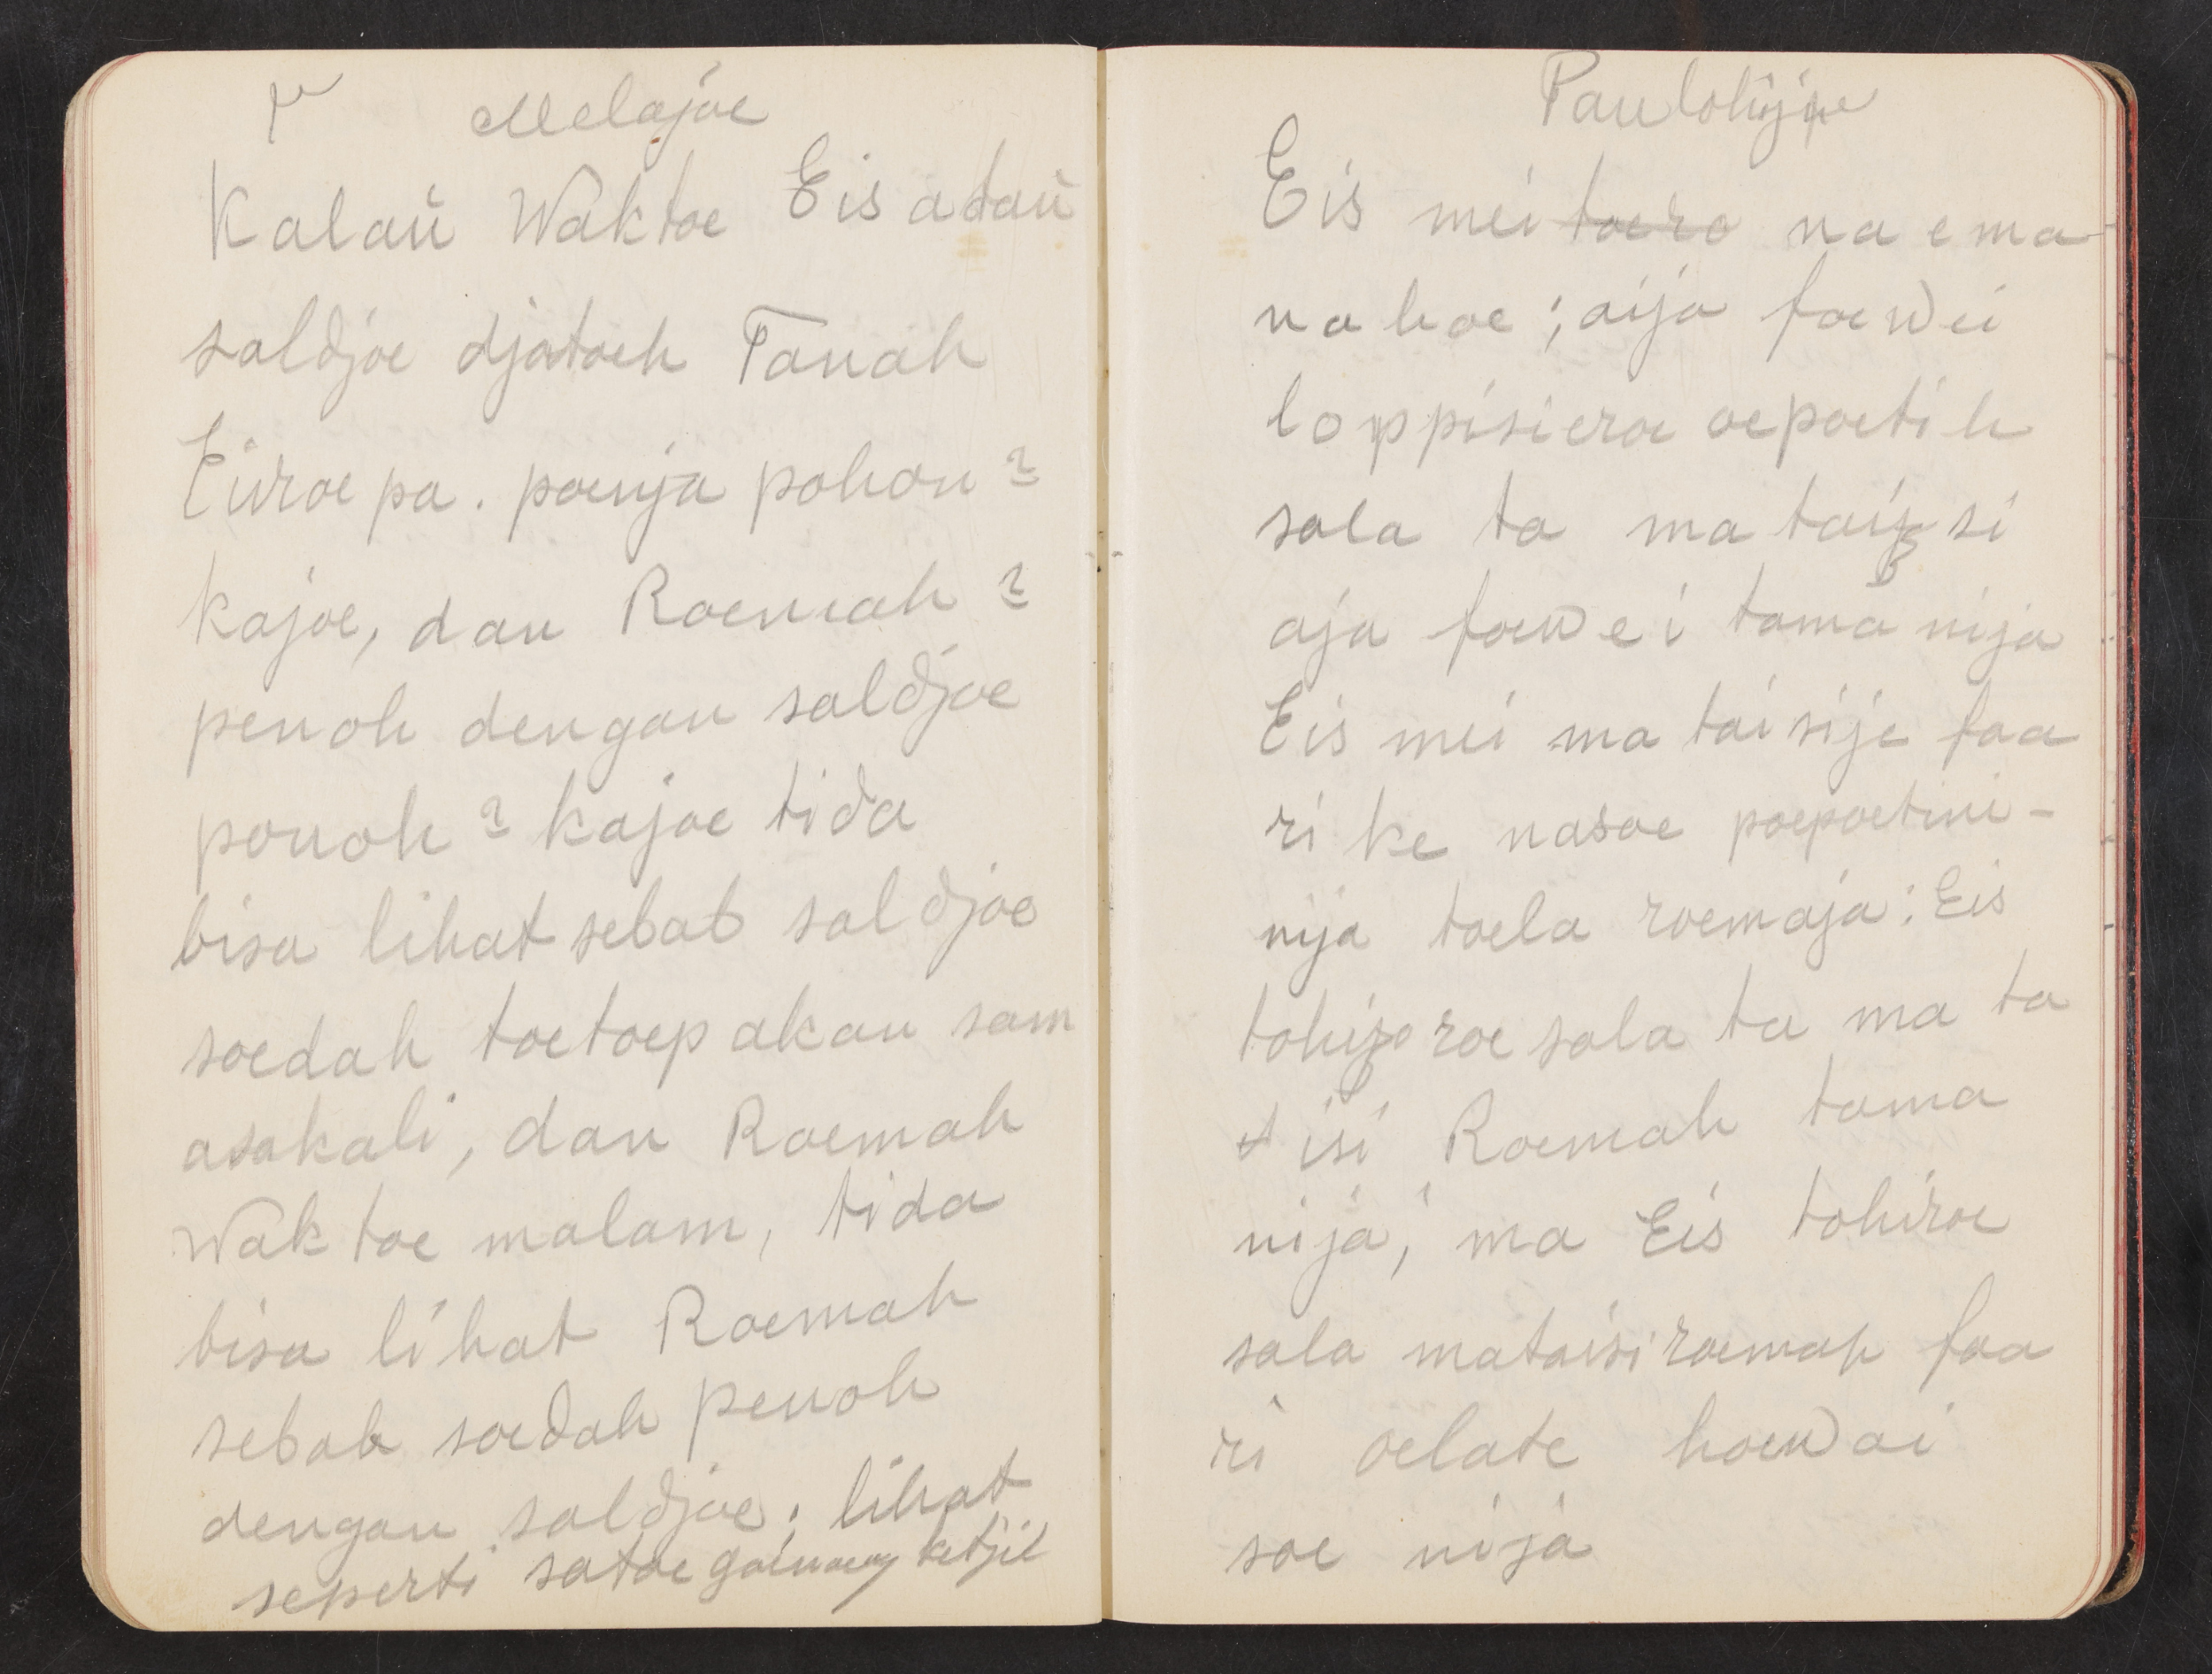 Melajoe
Kalaŭ Waktoe Eis ataŭ
saldjoe djatoeh Tanah
Eiroepa. poenja pohon 2
kajoe, dan Roemah 2
penoh dengan saldjoe
ponoh 2 kajoe tida
bisa lihat sebab saldjoe
soedah toetoep akan sam
asakali, dan Roemah
Waktoe malam, tida
bisa lihat Roemah
sebab soedah penoh
dengan saldjoe; lihat
seperti satoe goenoeng ketjil
Paulohij
Eis mei toero na ema
na hoe; aija foewei
loppisieroe oepoetih
sala ta ma taisi
aja foewei tama nija
Eis mei ma taisije faa
ri ke nasoe poepoetini-
nija toela roemaja: Eis
tohiroe sala ta ma ta
isi Roemah tama
nija, ma Eis tohiroe
sala mataisi roemah faa
ri oelate hoewai
soe nija